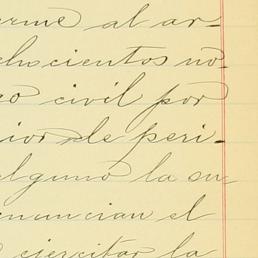 erme al ar-
chocientos no-
go civil por
rior de peri-
alguno la su-
enuncian el
ejercitar la